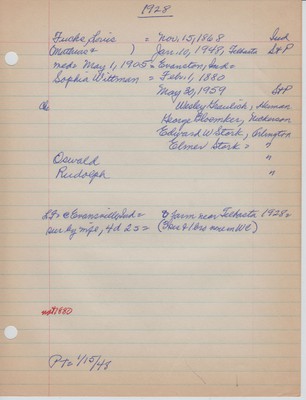 1928
Fuchs, Louis = Nov. 15, 1868 Ind
(Mathias & ) Jan. 10, 1948, Tekasta S+P
md = May 1, 1905 = Evanston, Ind =
Sophia Wittman = Feb. 1, 1880
May 30, 1959 S+P
Ch Wesley Gaulich, Herman
George Bloemker, Nickerson
Edward W Stork, Arlington
Elmer Stork = "
Oswald "
Rudolph "
Lf = Evansville, Ind = to farm near Tekasta 1928 =
sur by wife, 4 d 2 s =
not 1880
PT = 1/15/48